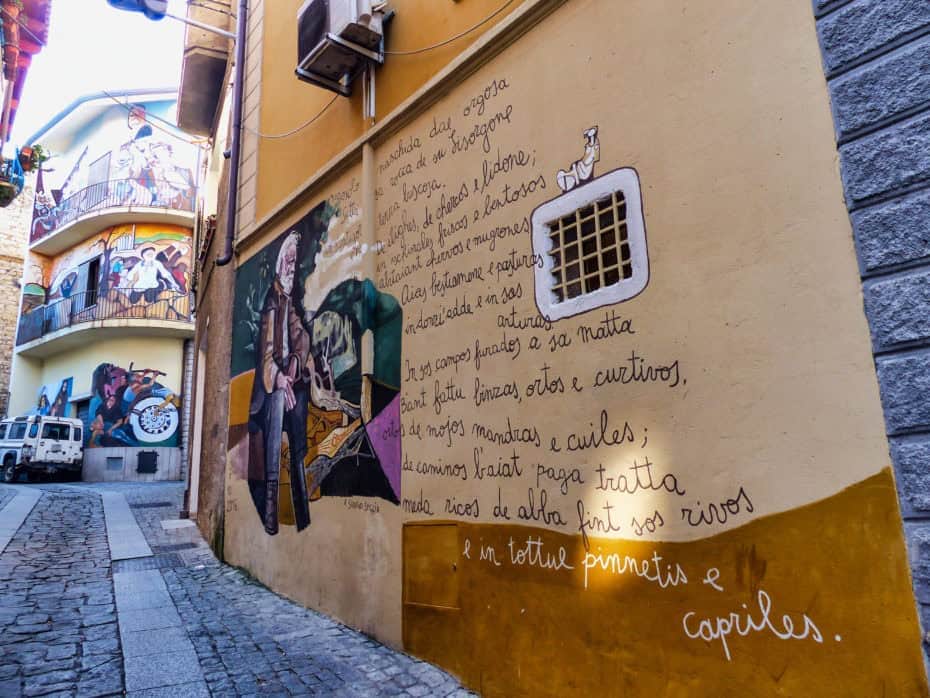 naschida dae orgosa
sa rocca de su Gisorgone
terra boscosa.
De elighes, de chercos e lidone;
in ischinales friscos e bentosos
abtaiant chervos e mugrones
Aiat bestiamene e pasturas
in donzi adde e in sas
arturas
In sos campos furados a sa matta
Biant fattu binzas, ortos e curtivos,
oltos de mojos mandras e cuiles;
de caminos b'aiat paga tratta
meda ricos de abba fint sos rivos
e in tottue pinnetis e
capriles.